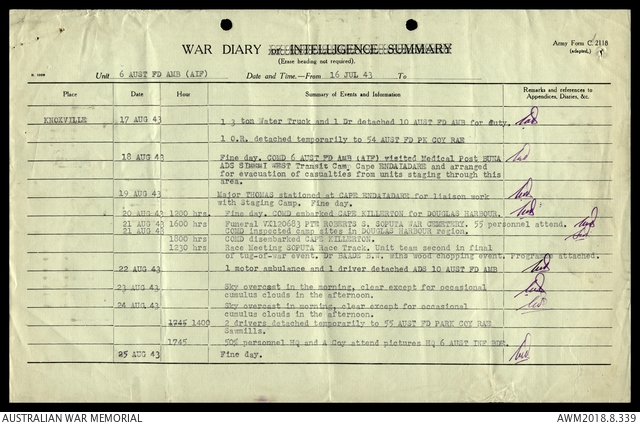 WAR DIARY or INTELLIGENCE SUMMARY
Army Form C. 2118
(adapted.)
(Erase heading not required).
Unit 6 AUST FD AMB (AIF) Date and Time.—From 16 JUL 43 To
Place Date Hour Summary of Events and Information Remarks and references to
Appendices, Diaries, &c.
KNOXVILLE 17 AUG 43 1 3 ton Water Truck and 1 Dr detached 10 AUST FD AMB for duty.
1 O.R. detached temporarily to 54 AUST FD PK COY RAE
18 AUG 43 Fine day. COMD 6 AUST FD AMB (AIF) visited Medical Post BUNA
ADS WEST Transit Camp Cape ENDAIADARE and arranged
for evacuation of casualties from units staging through this
area.
19 AUG 43 Major THOMAS stationed at CAPE ENDAIADARE for liaison work
with Staging Camp. Fine day.
20 AUG 43 1200 hrs. Fine day. COMD embarked CAPE KILLERTON for DOUGLAS HARBOUR.
21 AUG 43 1600 hrs Funeral VX120683 PTE ROBERTS S. SOPUTA WAR CEMETERY. 55 personnel attend.
21 AUG 43 COMD inspected camp sites in DOUGLAS HARBOUR region.
1800 hrs COMD disembarked CAPE KILLERTON.
1230 hrs Race Meeting SOPUTA Race Track. Unit team second in final
of tug-of-war event. Dr BAADE B.W. wins wood chopping event. Program attached.
22 AUG 43 1 motor ambulance and 1 driver detached ADS 10 AUST FD AMB
23 AUG 43 Sky overcast in the morning, clear except for occasional
cumulus clouds in the afternoon.
24 AUG 43 Sky overcast in morning, clear except for occasional
cumulus clouds in the afternoon.
1745 1400 2 drivers detached temporarily to 55 AUST FD PARK COY RAE
Sawmills.
1745 50% personnel HQ and A Coy attend pictures HQ 6 AUST INF BDE.
25 AUG 43 Fine day.
AUSTRALIAN WAR MEMORIAL
AWM2018.8.339